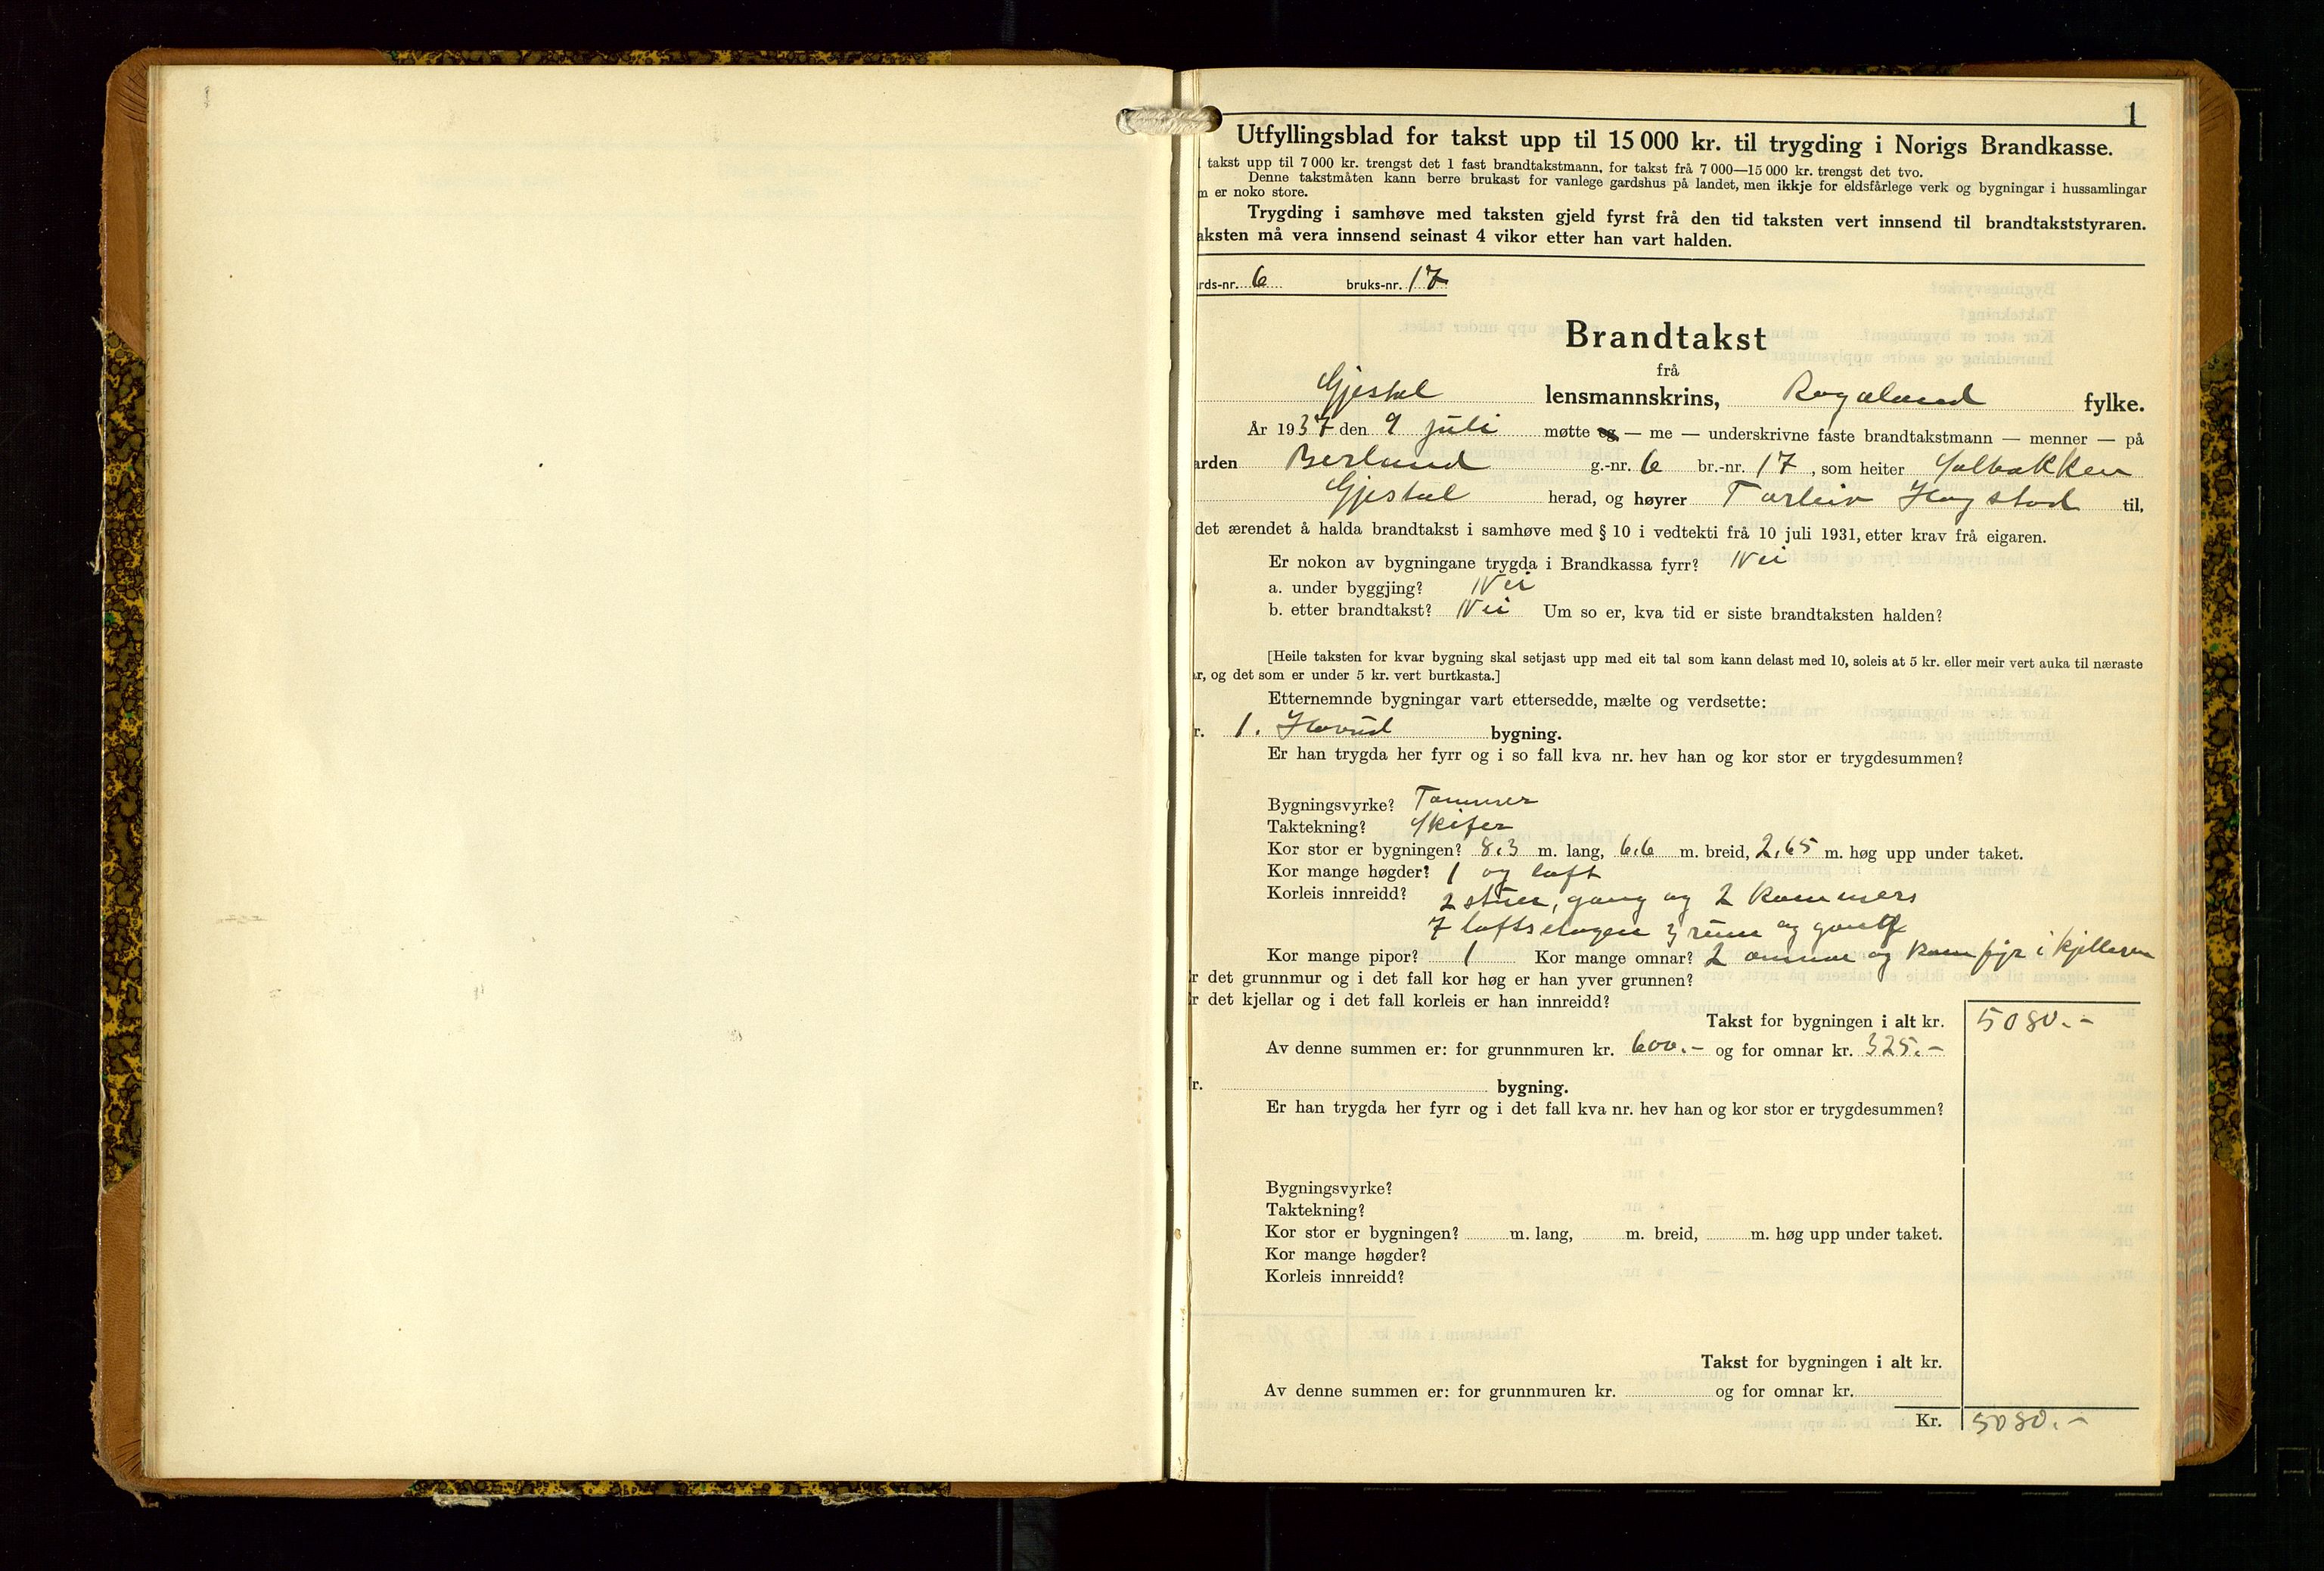 1
Utfyllingsblad for takst upp til 15 000 kr. til trygding i Norigs Brandkasse.
takst upp til 7 000 kr. trengst det 1 fast brandtakstmann, for takst frå 7 000—15 000 kr. trengst det tvo.
Denne takstmåten kann berre brukast for vanlege gardshus på landet, men ikkje for eldsfårlege verk og bygningar i hussamlingar
m er noko store.
Trygding i samhøve med taksten gjeld fyrst frå den tid taksten vert innsend til brandtakststyraren.
aksten må vera innsend seinast 4 vikor etter han vart halden.
rds-nr. 6 bruks-nr. 17
Brandtakst
frå
Gjestal lensmannskrins, Rogaland fylke.
År 1937 den 9 juli møtte eg — me — underskrivne faste brandtakstmann — menner — på
arden Berland g.-nr. 6 br.-nr. 17, som heiter Solbakken
Gjestal herad, og høyrer Torleiv Hogstad til,
det ærendet å halda brandtakst i samhøve med § 10 i vedtekti frå 10 juli 1931, etter krav frå eigaren.
Er nokon av bygningane trygda i Brandkassa fyrr? Nei
a. under byggjing? Nei
b. etter brandtakst? Nei Um so er, kva tid er siste brandtaksten halden?
[Heile taksten for kvar bygning skal setjast upp med eit tal som kann delast med 10, soleis at 5 kr. eller meir vert auka til næraste
r, og det som er under 5 kr. vert burtkasta.]
Etternemnde bygningar vart ettersedde, mælte og verdsette:
r. 1. Hovud bygning.
Er han trygda her fyrr og i so fall kva nr. hev han og kor stor er trygdesummen?
Bygningsvyrke? Tømmer
Taktekning? Skifer
Kor stor er bygningen? 8,3 m. lang, 6,6 m. breid, 2,65 m. høg upp under taket.
Kor mange høgder? 1 og loft
Korleis innreidd? 2 stuer, gang og 2 kammers
7 loftsetagen 3 rum og
Kor mange pipor? 1 Kor mange omnar? 2 omnar og komfyr i kjelleren
r det grunnmur og i det fall kor høg er han yver grunnen?
r det kjellar og i det fall korleis er han innreidd?
Takst for bygningen i alt kr. 5080.-
Av denne summen er: for grunnmuren kr. 600.- og for omnar kr. 325.-
r. bygning.
Er han trygda her fyrr og i det fall kva nr. hev han og kor stor er trygdesummen?
Bygningsvyrke?
Taktekning?
Kor stor er bygningen? m. lang, m. breid, m. høg upp under taket.
Kor mange høgder?
Korleis innreidd?
Takst for bygningen i alt kr.
Av denne summen er: for grunnmuren kr. og for omnar kr.
Kr. 5080.-